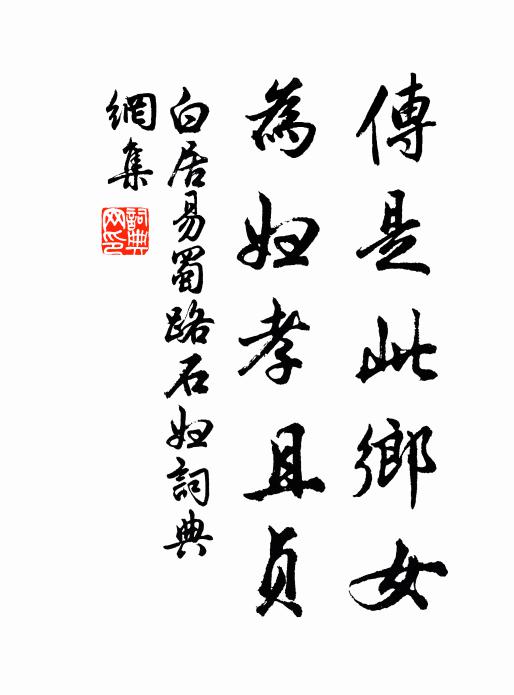 傳是此鄉女
為婦孝且貞
白居易蜀路石婦詞典
網集
詞典
网印